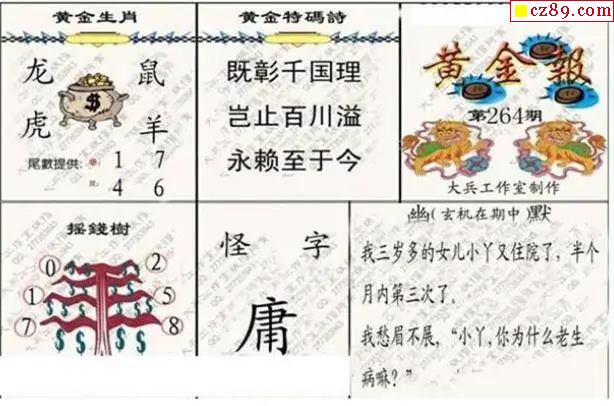 cz89.com
黄金生肖
龙 鼠
虎 羊
$
尾數提供: 1 7
4 6
黄金特碼詩
既彰千国理
岂止百川溢
永赖至于今
黄金報
第264期
大兵工作室制作
摇錢樹
0 2
1 5
7 8
$ $ $ $
怪 字
庸
幽(玄机在期中)默
我三岁多的女儿小丫又住院了,半个
月内第三次了。
我愁眉不展,“小丫,你为什么老生
病嘛?”